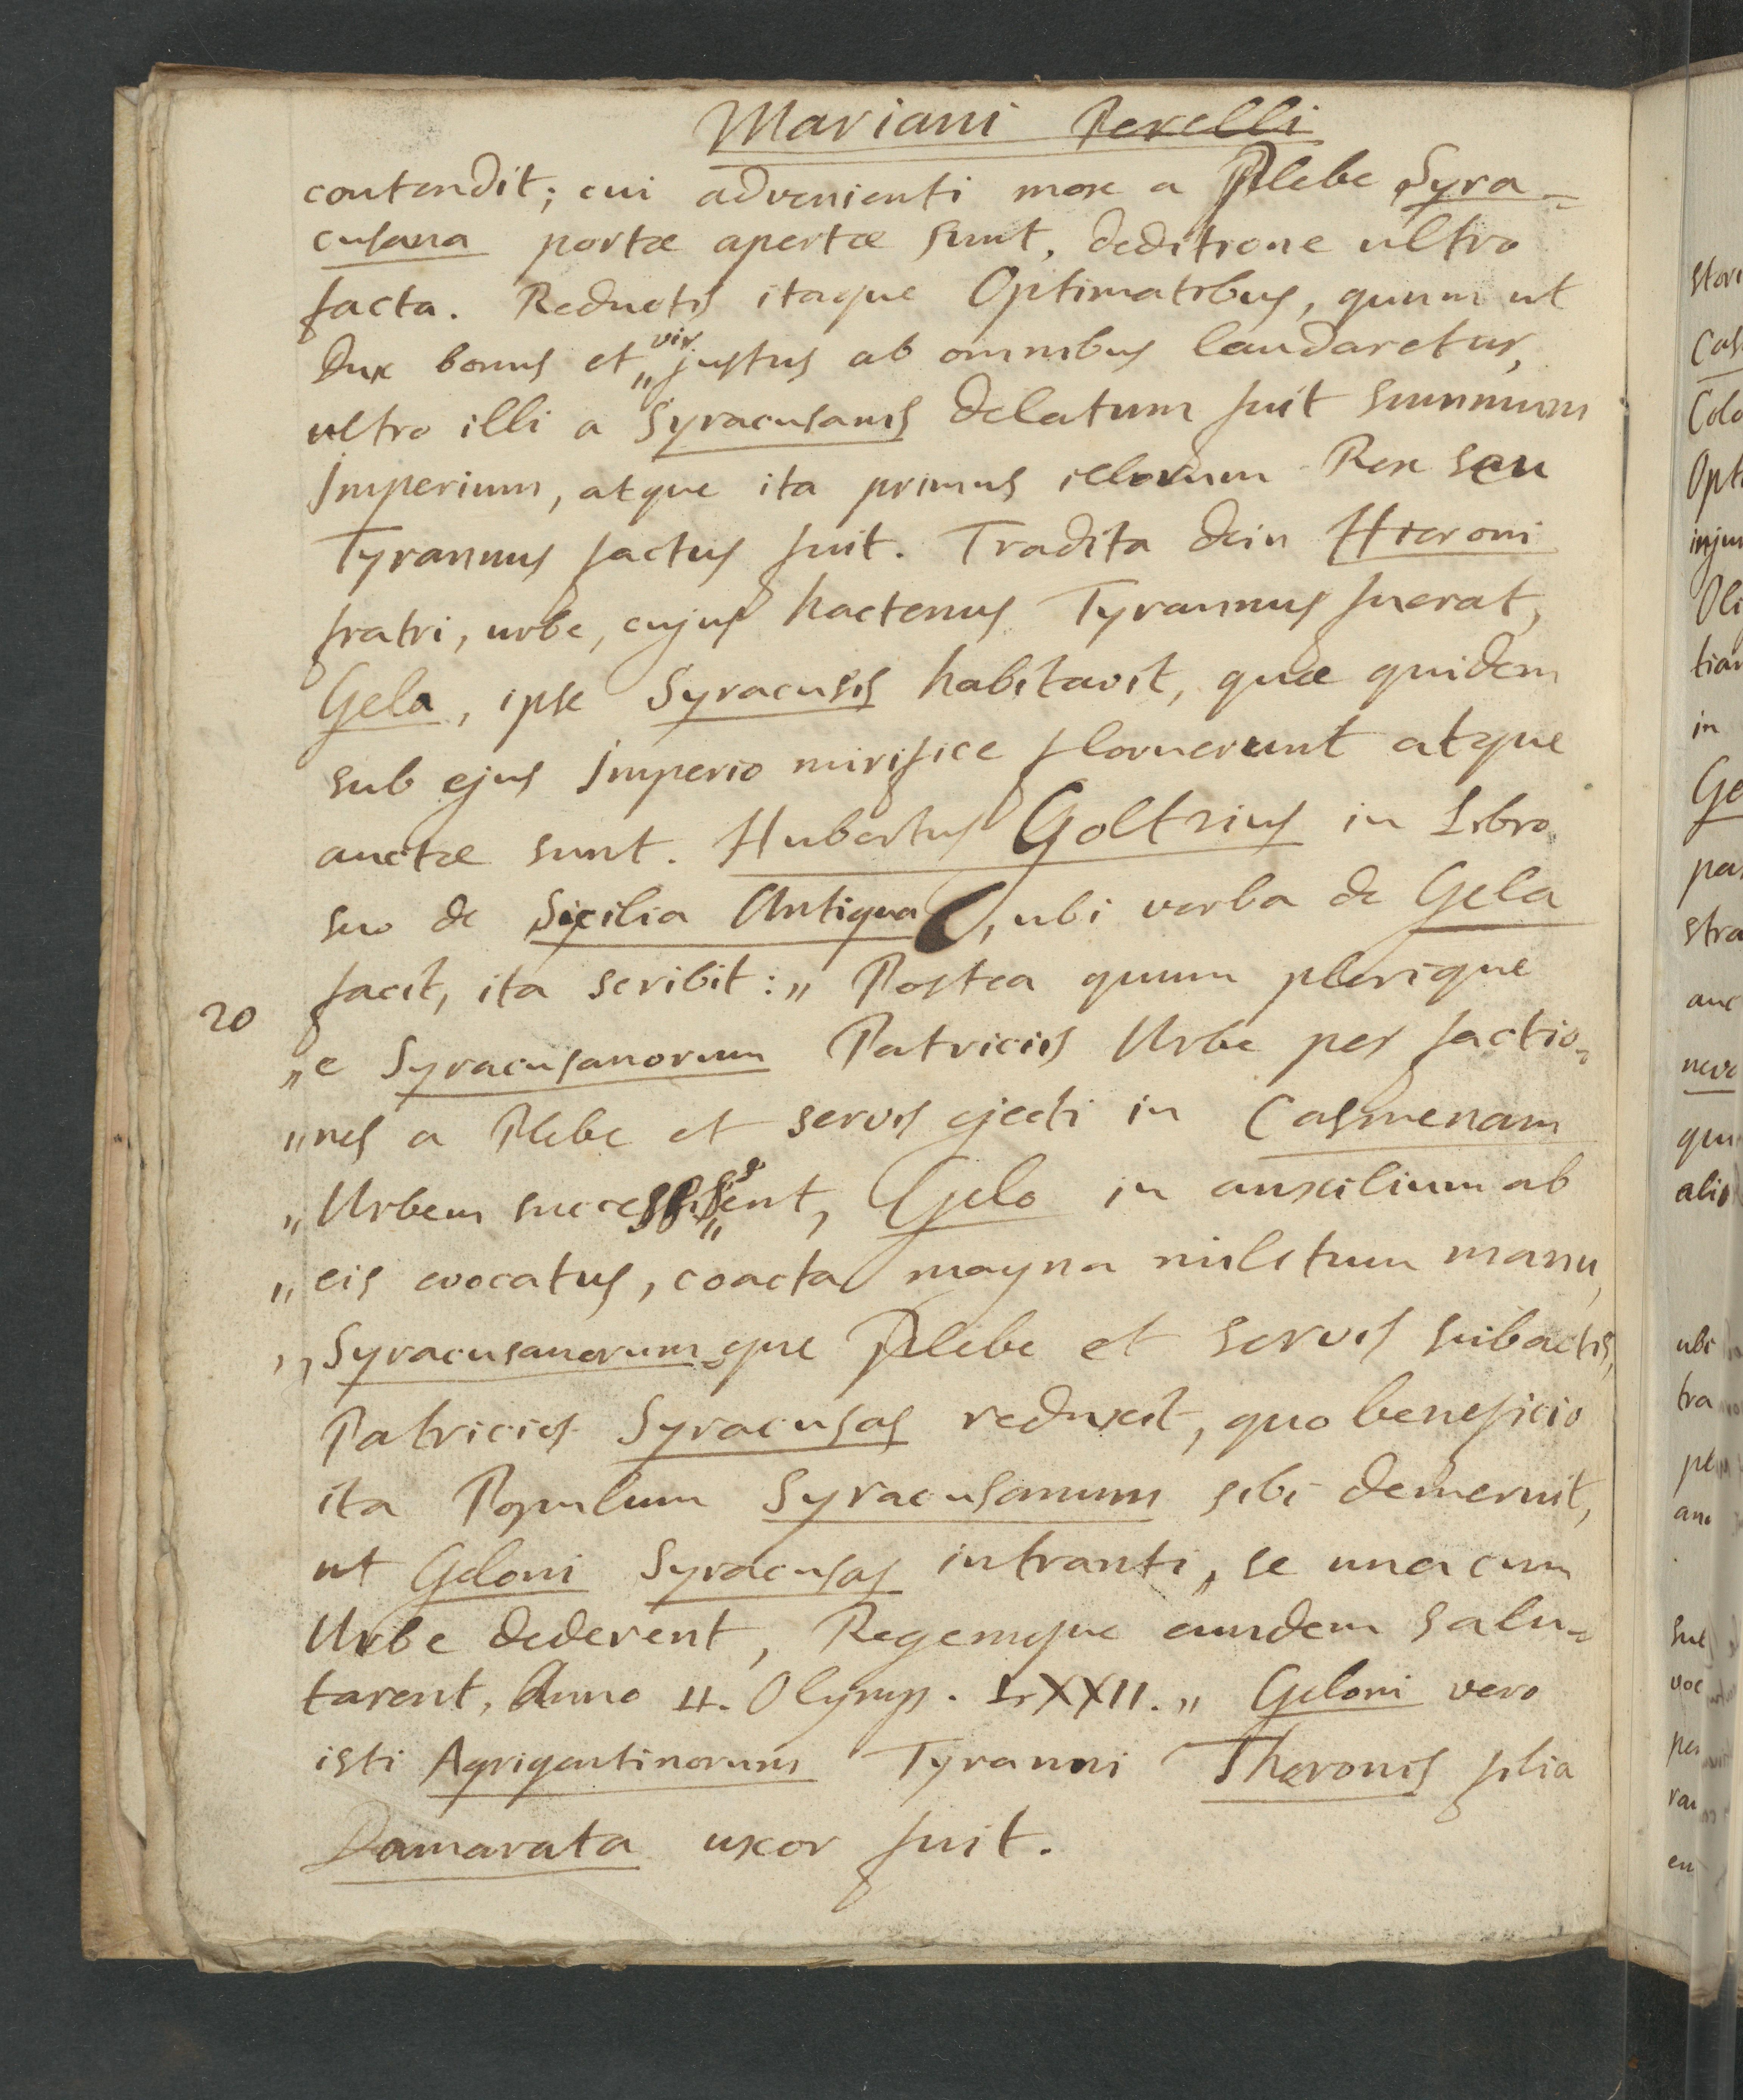 Mariani Perelli
contendit; cui advenienti mox a Plebe Syra-
cusana portæ apertæ sunt, deditione ultro
facta. Reductis itaque Optimatibus, quum ut
Dux bonus et „ vir justus ab omnibus laudaretur,
ultro illi a Syracusanis delatum fuit summum
Imperium, atque ita primus illorum Rex seu
Tyrannus factus fuit. Tradita dein Hieroni
fratri, urbe, cujus hactenus Tyrannus fuerat,
Gela, ipse Syracusis habitavit, quæ quidem
sub ejus Imperio mirifice floruerunt atque
auctæ sunt. Hubertus Goltzius in Libro
suo de Sicilia Antiqua, ubi verba de Gela
facit, ita scribit: „ Postea quum plerique
20
„ e Syracusanorum Patriciis Urbe per factio-
„ nes a Plebe et servis ejecti in Casmenam
„ Urbem successissent, Gelo in auxilium ab
„ eis evocatus, coacta magna militum manu,
„ Syracusanorumque Plebe et servis subactis,
Patricios Syracusas reduxit, quo beneficio
ita Populum Syracusanum sibi demeruit,
ut Geloni Syracusas intranti, se una cum
Urbe dederent, Regemque eundem salu-
tarent, Anno II. Olymp. LXXII. „ Geloni vero
isti Agrigentinorum Tyranni Theronis filia
Damarata uxor fuit.